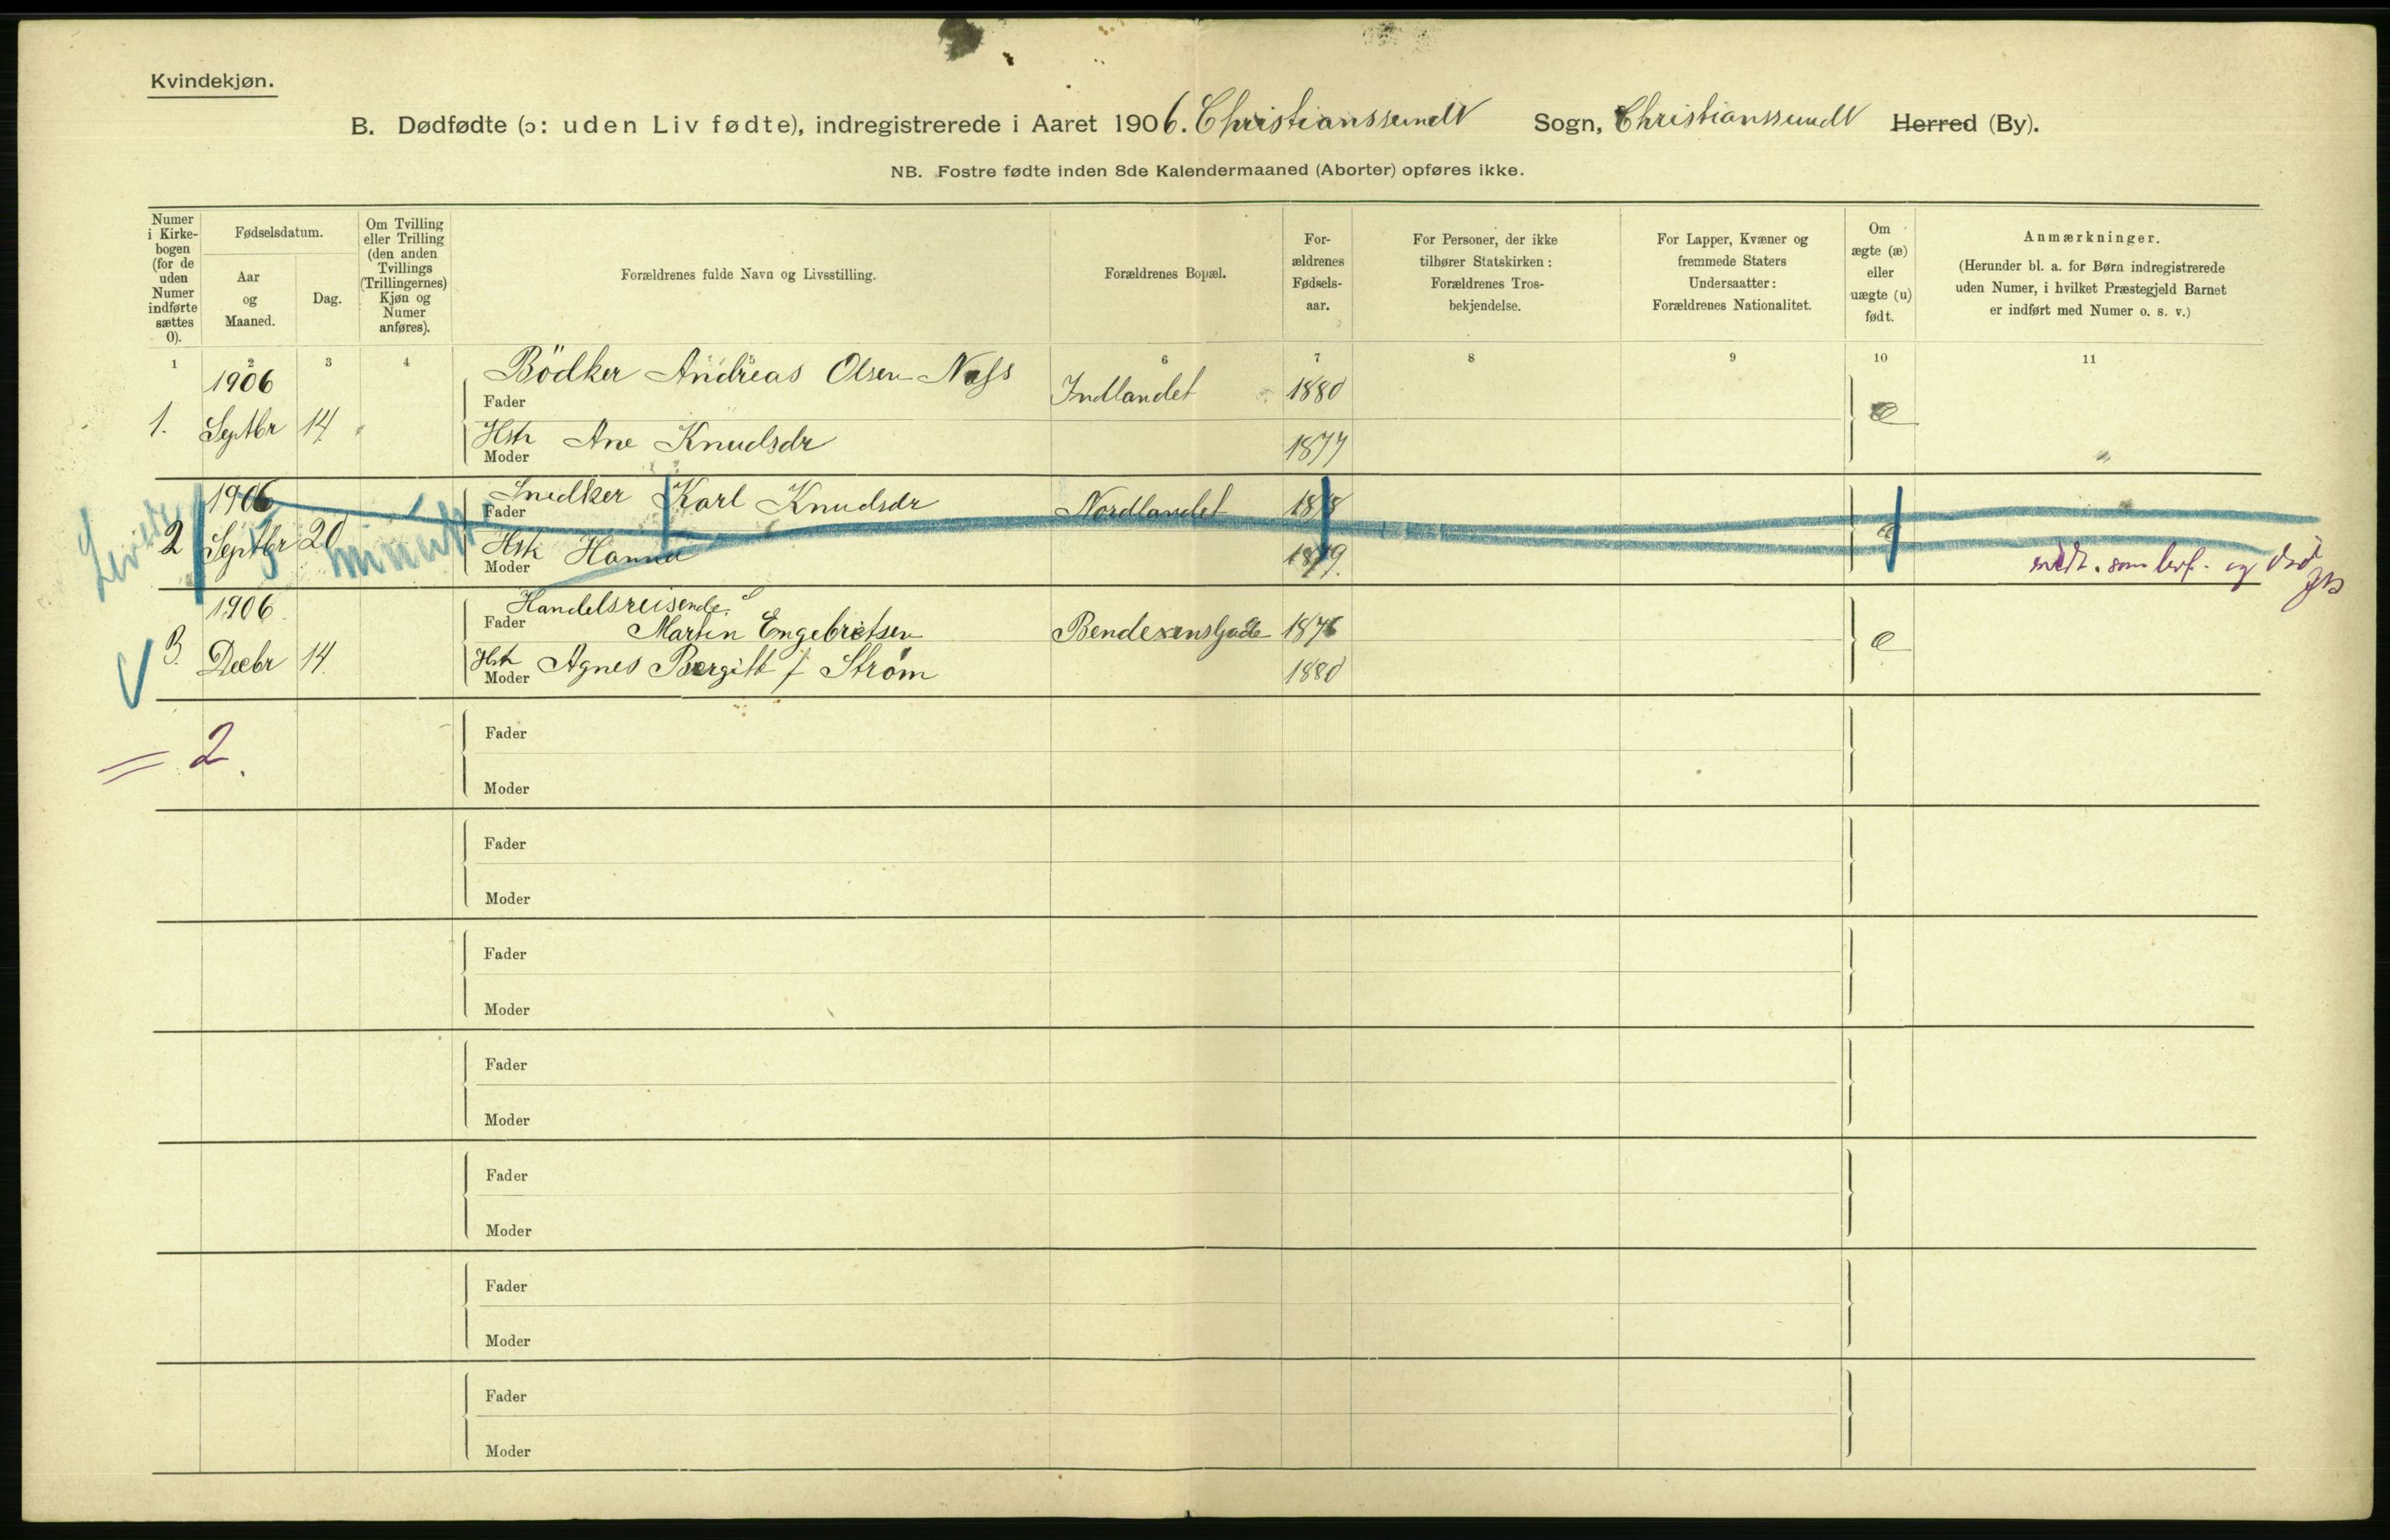 Kvindekjøn.
B. Dødfødte (ɔ: uden Liv fødte), indregistrerede i Aaret 1906. Christianssund Sogn, Christianssund Herred (By).
NB. Fostre fødte inden 8de Kalendermaaned (Aborter) opføres ikke.
Numer i Kirke-bogen (for de uden Numer indførte sættes 0).
Fødselsdatum.
Aar og Maaned.
Dag.
Om Tvilling eller Trilling (den anden Tvillings (Trillingernes) Kjøn og Numer anføres).
Forældrenes fulde Navn og Livsstilling.
Forældrenes Bopæl.
For-ældrenes Fødsels-aar.
For Personer, der ikke tilhører Statskirken: Forældrenes Tros-bekjendelse.
For Lapper, Kvæner og fremmede Staters Undersaatter: Forældrenes Nationalitet.
Om ægte (æ) eller uægte (u) født.
Anmærkninger.
(Herunder bl. a. for Børn indregistrerede uden Numer, i hvilket Præstegjeld Barnet er indført med Numer o. s. v.)
1 2 3 4 5 6 7 8 9 10 11
1906 Bödker Andreas Olsen Næss Indlandet 1880
Fader
1. Septbr 14. Hstr Ane Knudsdr 1877 æ "
Moder
1906 Snedker Karl Knudsdr Nordlandet 1878
Fader
Levede 5 minuter
2 Septbr 20 Hstr Hanna 1879. æ
Moder
medt. som levf. og död
1906. Handelsreisende
Fader Martin Engebretsen Bendixensgade 1876
3. Decbr 14. Hstr Agnes Bergitt f Ström 1880 æ
Moder
= 2.
Fader
Moder
Fader
Moder
Fader
Moder
Fader
Moder
Fader
Moder
Fader
Moder
Fader
Moder